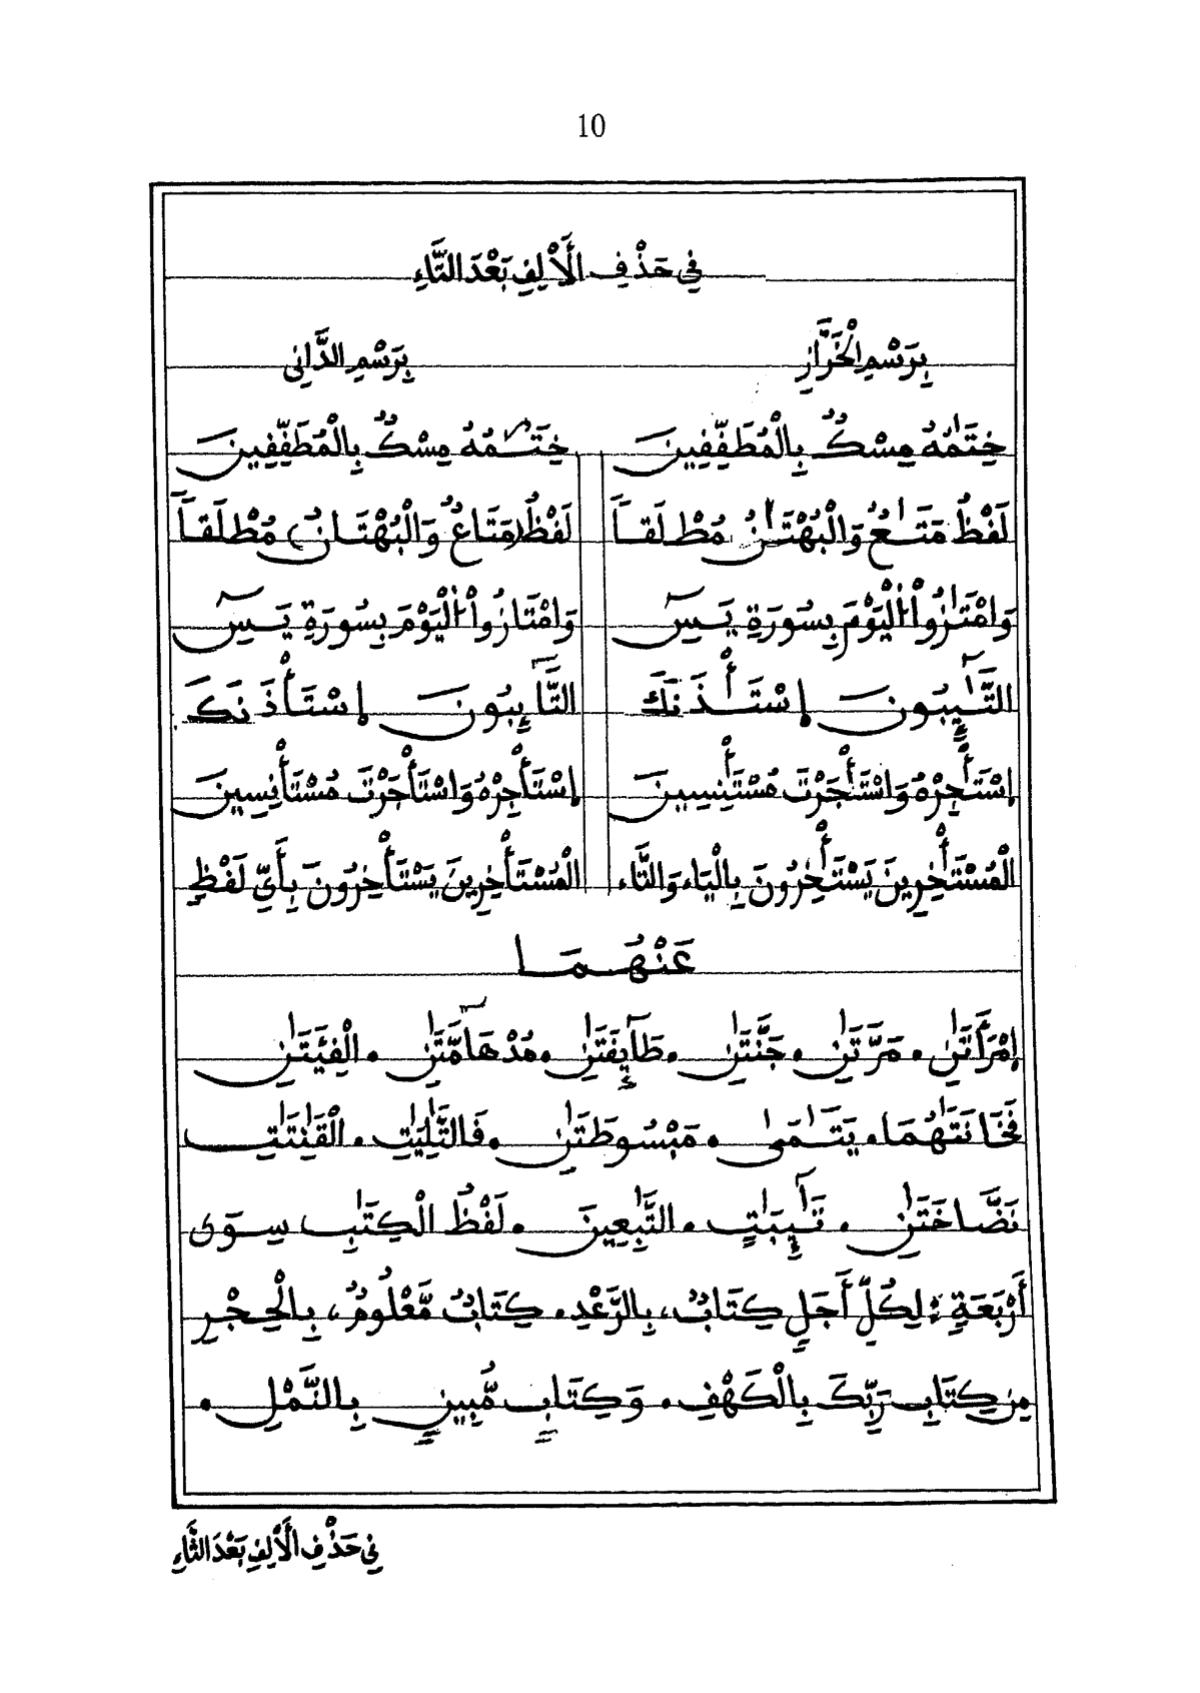 10
فِي حَذْفِ الْأَلِفِ بَعْدَ التَّاءِ
بِرَسْمِ الْخَرَّازِ بِرَسْمِ الدَّانِي
خِتَٰمُهُ مِسْكٌ بِالْمُطَفِّفِينَ خِتَٰمُهُ مِسْكٌ بِالْمُطَفِّفِينَ
لَفْظُ مَتَٰعٌ وَالْبُهْتَٰنُ مُطْلَقاً لَفْظُ (مَتَاعٌ وَالْبُهْتَانُ) مُطْلَقاً
وَامْتَٰزُواْ الْيَوْمَ بِسُورَةِ يَسِٓ وَامْتَازُواْ الْيَوْمَ بِسُورَةِ يَسِٓ
التَّٰٓئِبُونَ إِسْتَٔۡذَنَكَ التَّآئِبُونَ إِسْتَأْذَنَكَ
إِسْتَٔۡجِرْهُ وَاسْتَٔۡجَرْتَ مُسْتَٔۡنِسِينَ إِسْتَأْجِرْهُ وَاسْتَأْجَرْتَ مُسْتَأْنِسِينَ
الْمُسْتَٔۡخِرِينَ يَسْتَٔۡخِرُونَ بِالْيَاءِ وَالتَّاءِ الْمُسْتَأْخِرِينَ يَسْتَأْخِرُونَ بِأَيِّ لَفْظٍ
عَنْهُمَا
إِمْرَأَتَٰنِ . مَرَّتَٰنِ . جَنَّتَٰنِ . طَآئِفَتَٰنِ . مُدْهَآمَّتَٰنِ . الْفِئَتَٰنِ
فَخَانَتَٰهُمَا . يَتَٰمَىٰ . مَبْسُوطَتَٰنِ . فَالتَّٰلِيَٰتِ . الْقَٰنِتَٰتِ
نَضَّاخَتَٰنِ . تَٰٓئِبَٰتٍ . التَّٰبِعِينَ . لَفْظُ الْكِتَٰبِ سِوَى
أَرْبَعَةٍ : لِكُلِّ أَجَلٍ كِتَابٌ، بِالرَّعْدِ . كِتَابٌ مَّعْلُومٌ، بِالْحِجْرِ
مِن كِتَابِ رَبِّكَ بِالْكَهْفِ . وَكِتَابٍ مُّبِينٍ بِالنَّمْلِ .
فِي حَذْفِ الْأَلِفِ بَعْدَ الثَّاءِ